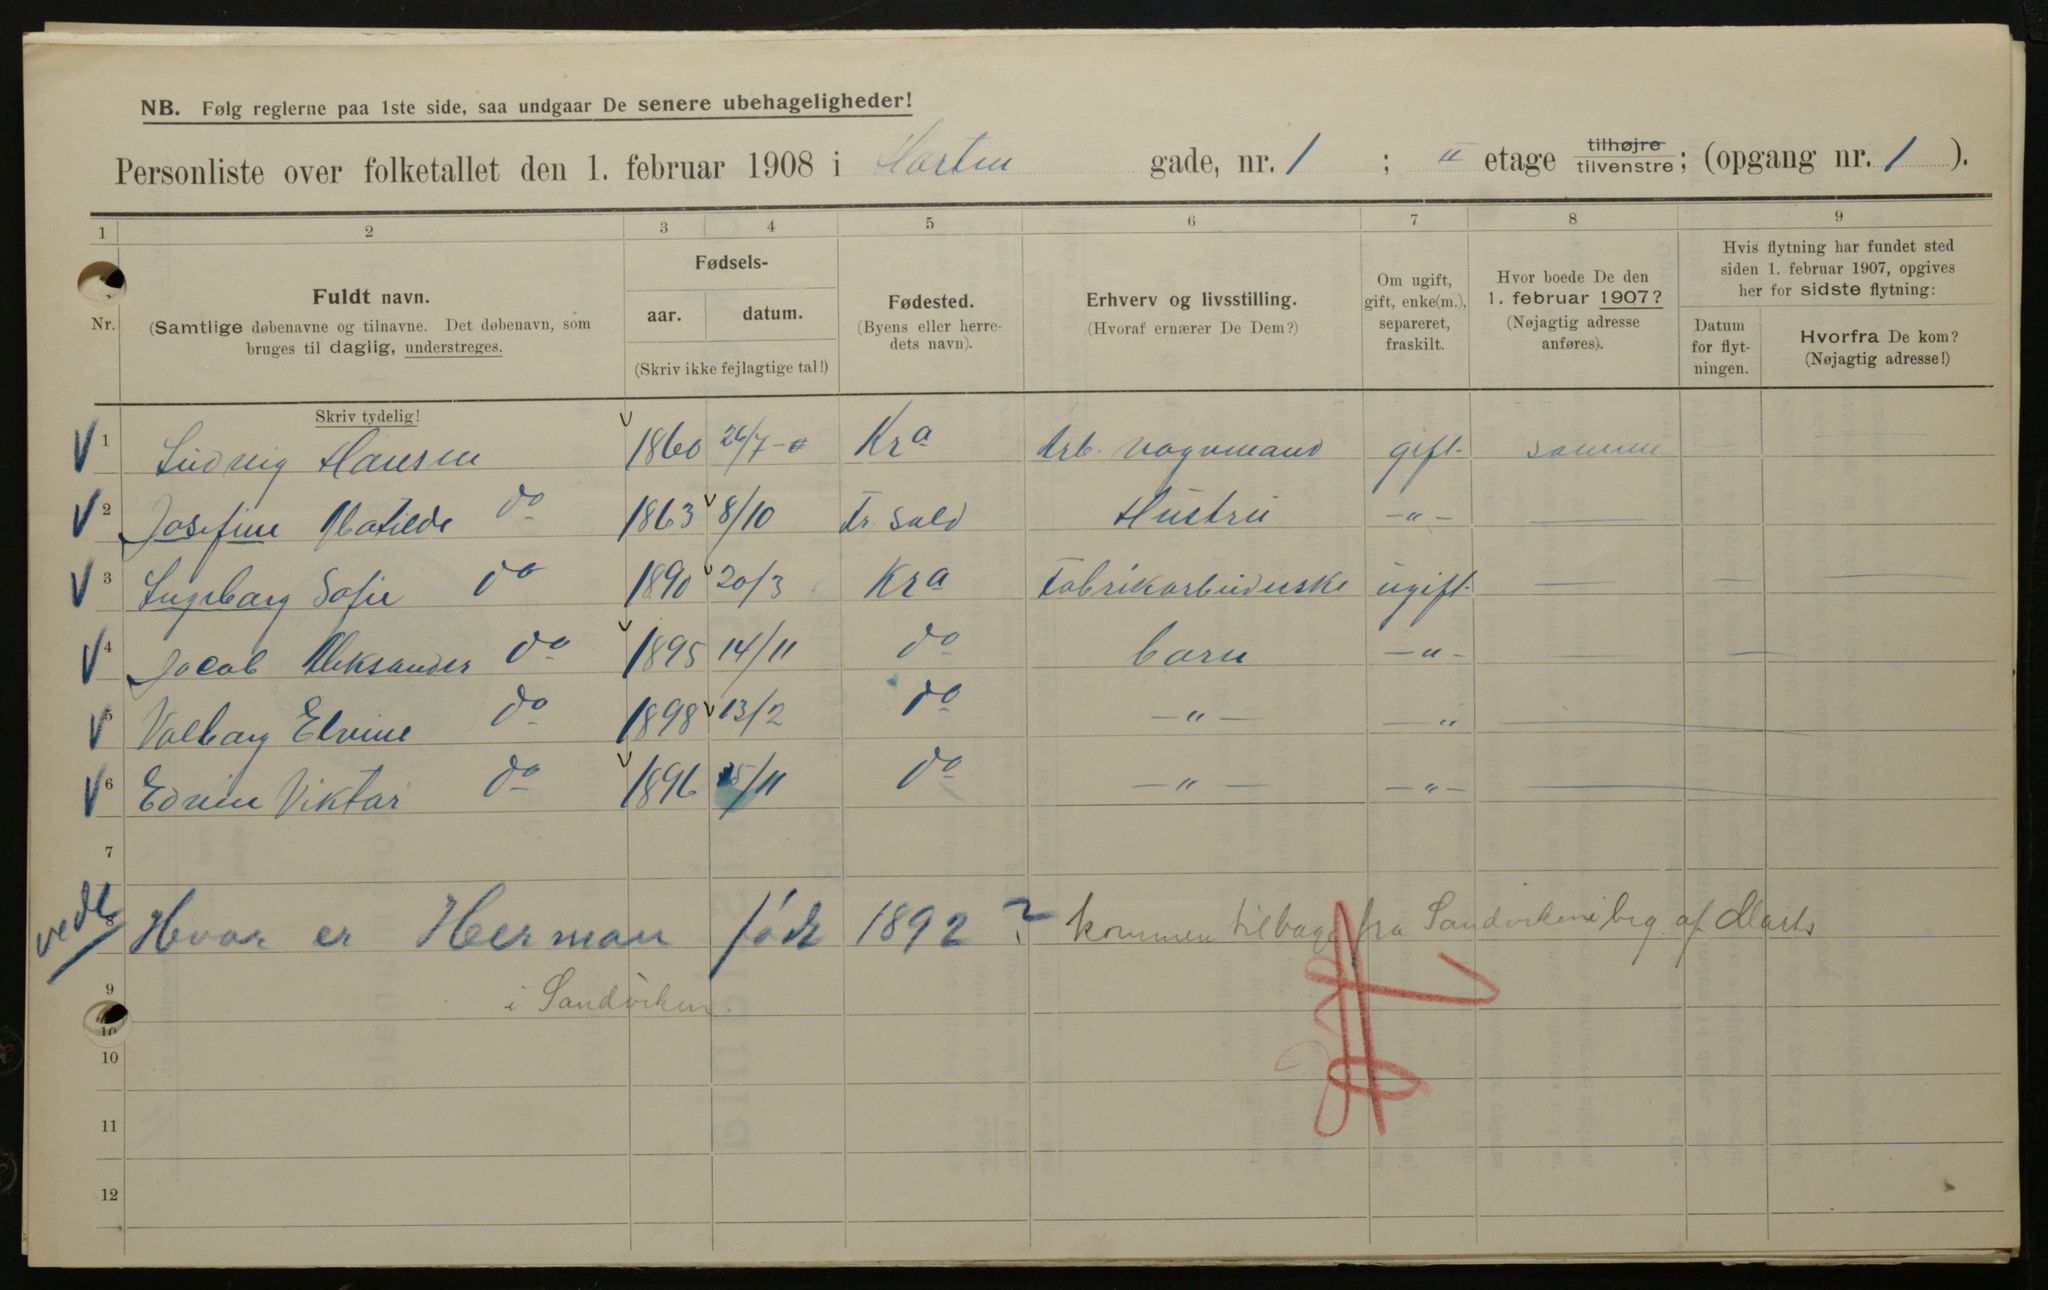 NB. Følg reglerne paa 1ste side, saa undgaar De senere ubehageligheder!
Personliste over folketallet den 1. februar 1908 i gade, nr. 1 ; II etage tilhøjre tilvenstre; (opgang nr. 1 ).
1 2 3 4 5 6 7 8 9
Nr.
Fuldt navn.
(Samtlige døbenavne og tilnavne. Det døbenavn, som
bruges til daglig, understreges.
Fødsels-
aar. datum.
(Skriv ikke fejlagtige tal!)
Fødested.
(Byens eller herre-
dets navn).
Erhverv og livsstilling.
(Hvoraf ernærer De Dem?)
Om ugift,
gift, enke(m.),
separeret,
fraskilt.
Hvor boede De den
1. februar 1907?
(Nøjagtig adresse
anføres).
Hvis flytning har fundet sted
siden 1. februar 1907, opgives
her for sidste flytning:
Datum
for flyt-
ningen.
Hvorfra De kom?
(Nøjagtig adresse!)
Skriv tydelig!
1 Ludvig Hansen 1860 26/7 Kra Arb. vognmand gift samme
2 Josefine Matilde do 1863 8/10 Fr.hald Hustru -"-
3 Ingeborg Sofie do 1890 20/3 Kra Fabrikarbeiderske ugift
4 Jacob Aleksander do 1895 14/11 do barn -"-
5 Valborg Elvine do 1898 13/2 do -"- -"
6 Edvin Viktor do 1896 /11 do -"- -"-
7
vedl 8 Hvor er Herman født 1892? kommen tilbage fra Sandviken i beg. af Marts
9 i Sandviken.
10
10
11
12